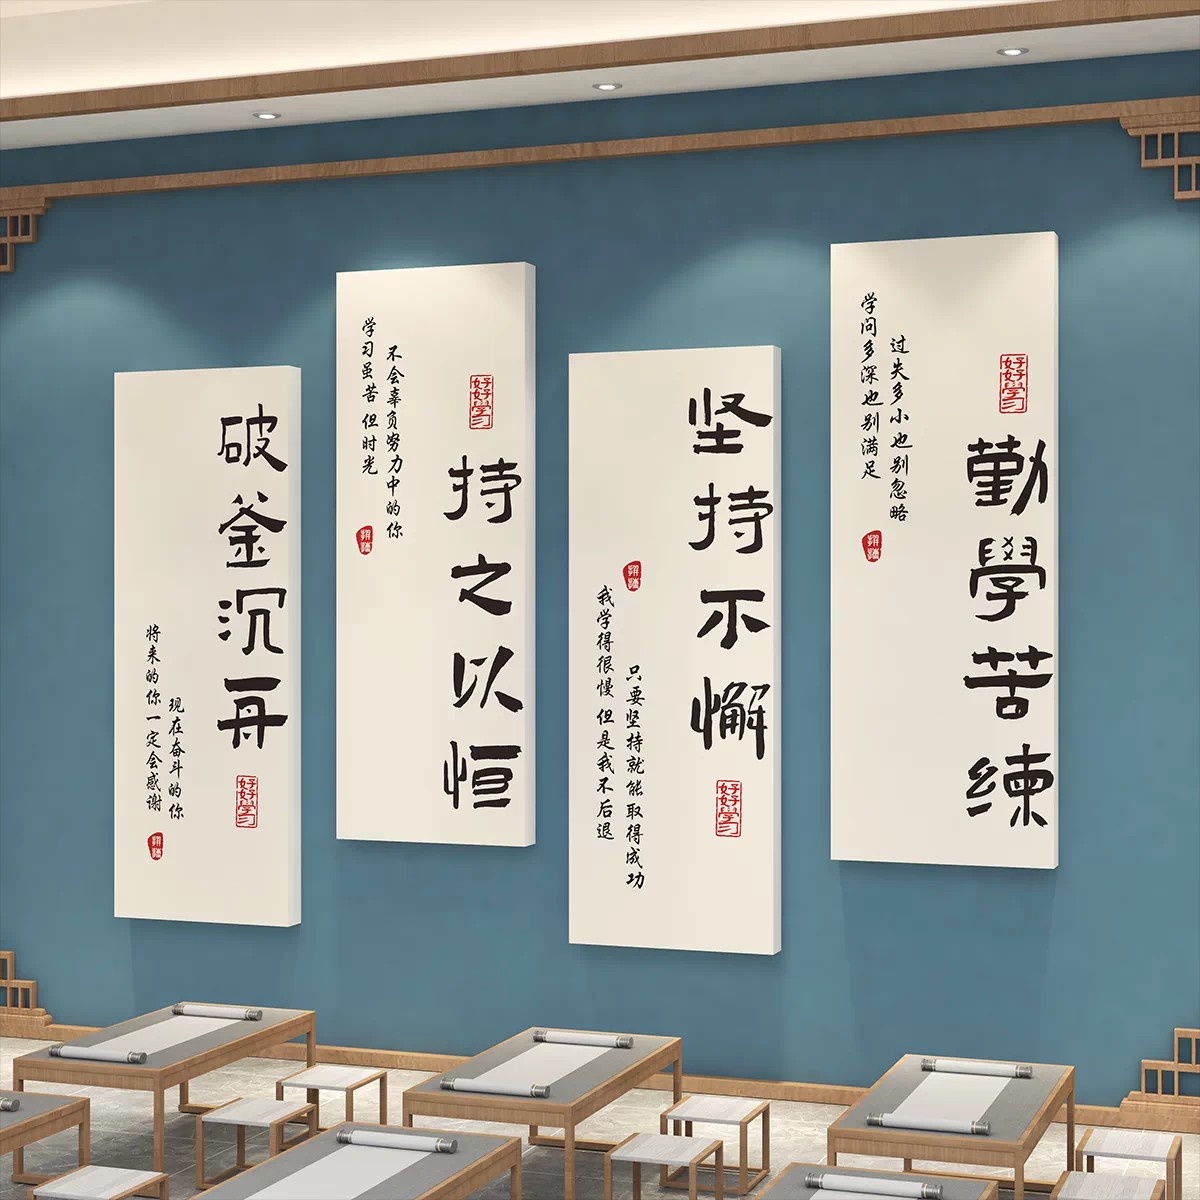 破釜沉舟
将来的你一定会感谢
现在奋斗的你
好好學习
持之以恒
学习虽苦 但时光
不会辜负努力中的你
好好學习
坚持不懈
我学得很慢 但是我不后退
只要坚持就能取得成功
好好學习
勤學苦练
学问多深也别满足
过失多小也别忽略
好好學习